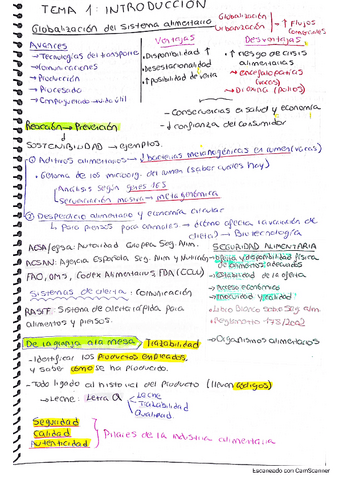 TEMA 1: INTRODUCCIÓN
Globalización del sistema alimentario
Globalización
Urbanización → ↑ Flujos comerciales
Avances
→ Tecnologías del transporte
→ Comunicaciones
→ Producción
→ Procesado
→ Empaquetado → vida útil
Ventajas
• Disponibilidad ↑
• Desestacionalidad
• ↑ posibilidad de venta
Desventajas
• ↑ riesgo de crisis alimentarias
→ encefalopatías (vacas)
→ Dioxina (pollos)
→ Consecuencias en salud y economía
→ ↓ confianza del consumidor
Reacción → Prevención
SOSTENIBILIDAD → ejemplos.
① Aditivos alimentarios → ↓ bacterias metanogénicas en rumen (vacas)
• Genoma de los microorg. del rumen (saber cuales hay)
Análisis según genes
Secuenciación masiva → metagenómica
② Desperdicio alimentario y economía circular
↳ Para piensos para animales →
→ Biotecnología
AESA/EFSA: Autoridad Europea Seg. Alim.
AESAN: Agencia Española Seg. Alim y Nutrición
FAO, OMS, Codex Alimentarius, FDA (EEUU)
Sistemas de alerta: comunicación
RASFF: Sistema de alerta rápida para
alimentos y piensos.
SEGURIDAD ALIMENTARIA
disponibilidad física
de alimentos adecuados
→ Estabilidad de la oferta
→ Acceso económico
→ Inocuidad y calidad
→ Libro Blanco sobre Seg. Alim.
→ Reglamento 178/2002
→ Organismos alimentarios
De la granja a la mesa → Trazabilidad
- Identificar los productos empleados,
y saber cómo se ha producido.
- Todo ligado al historial del producto (llevan códigos)
→ Leche: Letra Q
Leche
Trazabilidad
Qualidad
Seguridad
Calidad
Autenticidad
Pilares de la industria alimentaria
Escaneado con CamScanner